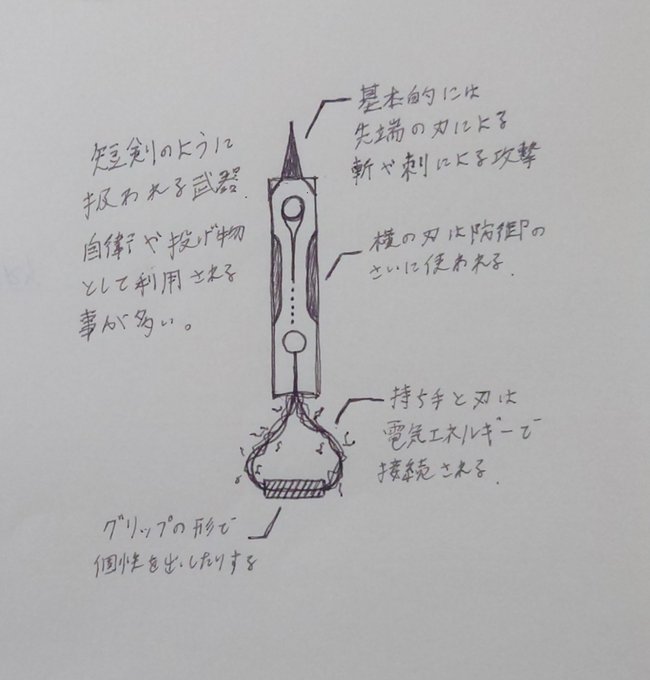 短剣のように
扱われる武器.
自衛や投げ物
として利用される
事が多い。
基本的には
先端の刃による
斬や刺による攻撃
横の刃は防御の
さいに使われる.
持ち手と刃は
電気エネルギーで
接続される.
グリップの形で
個性を出したりする